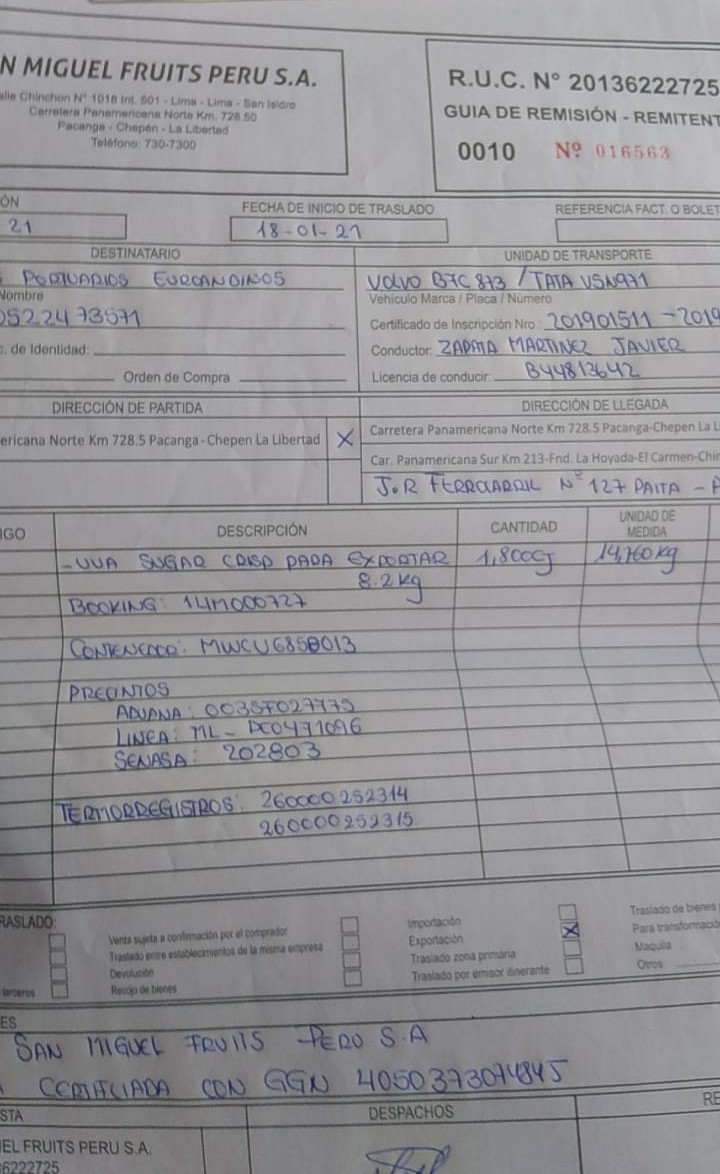 N MIGUEL FRUITS PERU S.A.
alle Chinchon N° 1018 Int. 501 - Lima - Lima - San Isidro
Carretera Panamericana Norte Km. 728.50
Pacanga - Chepén - La Libertad
Teléfono: 730-7300
R.U.C. N° 20136222725
GUIA DE REMISIÓN - REMITENT
0010 Nº 016563
ÓN
21
FECHA DE INICIO DE TRASLADO
18-01-21
REFERENCIA FACT. O BOLET
DESTINATARIO
PORTUARIOS EUROANDINOS
Nombre
0522473571
. de Identidad:
Orden de Compra
UNIDAD DE TRANSPORTE
VOLVO B7C 873 / TATA V5N971
Vehículo Marca / Placa / Número
Certificado de Inscripción Nro.: 201901511 - 2019
Conductor: ZAPATA MARTINEZ JAVIER
Licencia de conducir: B44813642
DIRECCIÓN DE PARTIDA
ericana Norte Km 728.5 Pacanga - Chepen La Libertad X
DIRECCIÓN DE LLEGADA
Carretera Panamericana Norte Km 728.5 Pacanga-Chepen La L
Car. Panamericana Sur Km 213-Fnd. La Hoyada-El Carmen-Chin
J.R FERROCARRIL Nº 127 PAITA - P
IGO DESCRIPCIÓN CANTIDAD UNIDAD DE MEDIDA
- UVA SUGAR CRISP PARA EXPORTAR 1,800CJ 14,760 Kg
8.2 Kg
BOOKING: 14M000727
CONTENEDOR: MWCU6858013
PRECINTOS
ADUANA: 0035F027775
LINEA: ML - PE0471096
SENASA: 202803
TERMORREGISTROS: 260000252314
260000252315
RASLADO:
terceros
Venta sujeta a confirmación por el comprador
Traslado entre establecimientos de la misma empresa
Devolución
Recojo de bienes
Importación
Exportación X
Traslado zona primaria
Traslado por emisor itinerante
Traslado de bienes
Para transformació
Maquila
Otros
ES
SAN MIGUEL FRUITS PERU S.A
CERTIFCIADA CON GGN 4050373074845
STA
DESPACHOS
RE
EL FRUITS PERU S.A.
6222725